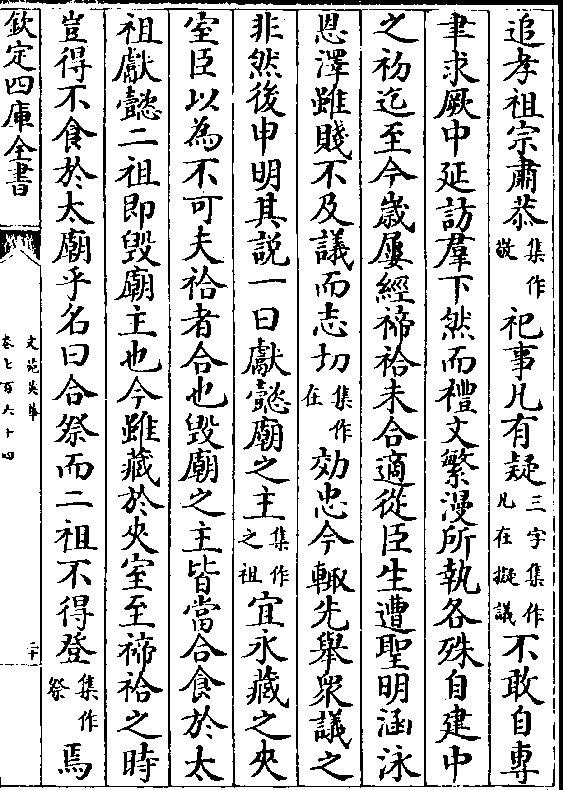 追孝祖宗肅恭集作敬祀事凡有疑三字集作凡在擬議不敢自專
聿求厥中延訪羣下然而禮文繁漫所執各殊自建中
之初迄至今歲屢經禘祫未合適從臣生遭聖明涵泳
恩澤雖賤不及議而志切集作在効忠今輙先舉衆議之
非然後申明其説一曰獻懿廟之主集作之祖宜永藏之夾
室臣以為不可夫祫者合也毁廟之主皆當合食於太
祖獻懿二祖即毁廟主也今雖藏於夾室至禘祫之時
豈得不食於太廟乎名曰合祭而二祖不得登集作祭焉
欽定四庫全書
文苑英華
卷七百六十四
二十